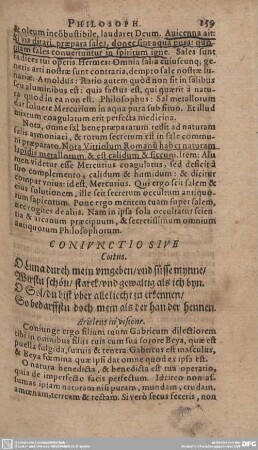 PHILOSOPH. 159
& oleum incõbustibile, laudaret Deum. Auicenna ait:
Si vis ditari, præpara sales, donec sint aqua pura: quo-
niam sales conuertuntur in spiritum igne. Sales sunt
radices tui operis. Hermes: Omnia salia cuiuscunq; ge-
neris arti nostræ sunt contraria, dempto sale nostræ lu-
nariæ. Arnoldus: Ratio autem quod non sit in salibus
seu aluminibus est: quia factus est, qui quærit à natu-
ra quod in ea non est. Philosophus: Sal metallorum
dat soluere Mercurium in aqua pura subfistio. Et illud
Mercurium in igne erit perfecta medicina.
Nota, omne sal bene præparatum redit ad naturam
salis armoniaci, & totum secretum est in sale commu-
ni præparato. Nota Vitriolum Romanũ habet naturam
lapidis metallorum, & est calidum & siccum. Item: Alu-
men videtur esse Mercurius coagulatus, sed deficit à
suo complemento, calidum & humidum: & dicitur
compar voua: id est, Mercurius. Qui ergo scit salem &
eius solutionem, ille scit secretum occultum antiquo-
rum sapientum. Pone ergo mentem tuam super salem,
nec cogites de aliis. Nam in ipsa sola occultatur scien-
tia & arcanum præcipuum, & secretissimum omnium
antiquorum Philosophorum.
CONIVNCTIO SIVE
Coitus.
O Luna durch mein vmgeben/vnd süsse mynne/
Wirstu schön/starck/vnd gewaltig als ich byn.
O Sol/du bist vber alle liecht zu erkennen/
So bedarffstu doch mein als der han der hennen.
Arisleus in visione.
Coniunge ergo filium tuum Gabricum dilectiorem
tibi in omnibus filiis tuis cum sua sorore Beya, quæ est
puella fulgida, suauis & tenera. Gabricus est masculus,
& Beya fœmina quæ ipsi dat omne quod ex ipsa est.
O natura benedicta, & benedicta est tua operatio,
quia de imperfecto facis perfectum. Idcirco non as-
sumas ipsam naturam nisi puram, mundam, crudam,
amœnam, terream & rectam. Si verò secus feceris, non